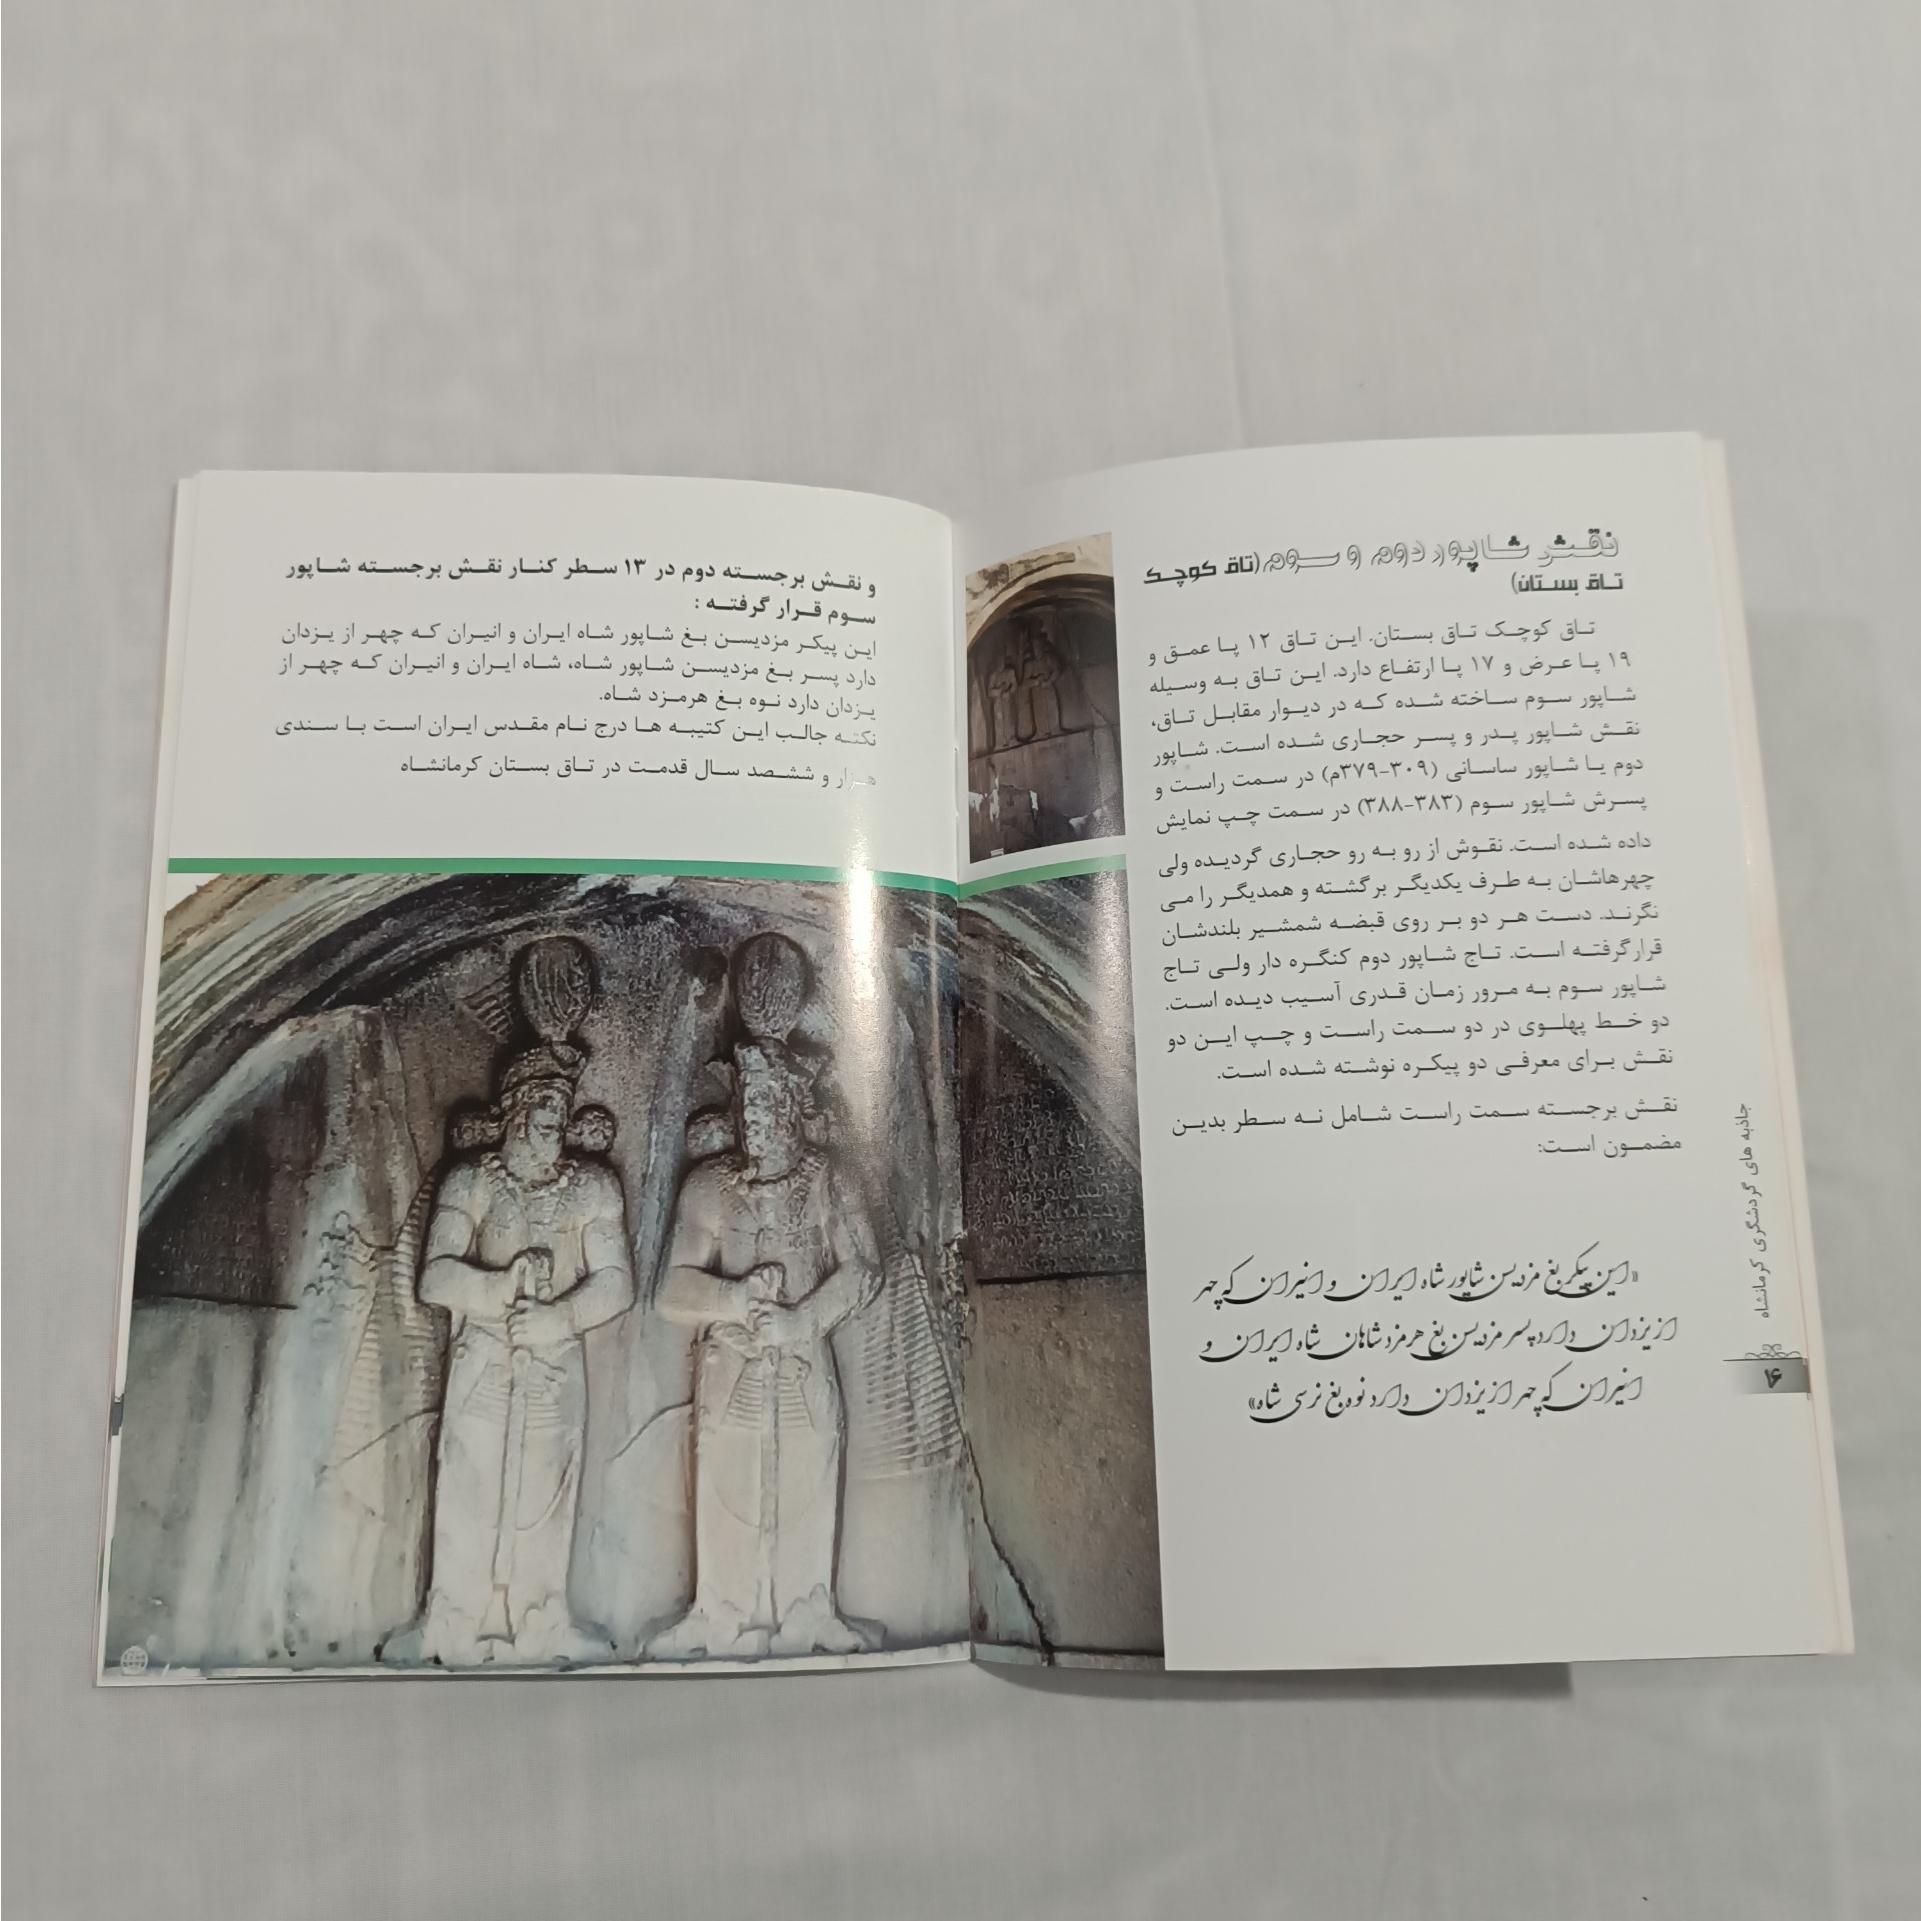 نقش شاپور دوم و سوم(تاق کوچک
تاق بستان)
تاق کوچک تاق بستان. این تاق ۱۲ پا عمق و
۱۹ پا عرض و ۱۷ پا ارتفاع دارد. این تاق به وسیله
شاپور سوم ساخته شده که در دیوار مقابل تاق،
نقش شاپور پدر و پسر حجاری شده است. شاپور
دوم یا شاپور ساسانی (۳۰۹-۳۷۹م) در سمت راست و
پسرش شاپور سوم (۳۸۳-۳۸۸) در سمت چپ نمایش
داده شده است. نقوش از رو به رو حجاری گردیده ولی
چهرهاشان به طرف یکدیگر برگشته و همدیگر را می
نگرند. دست هر دو بر روی قبضه شمشیر بلندشان
قرارگرفته است. تاج شاپور دوم کنگره دار ولی تاج
شاپور سوم به مرور زمان قدری آسیب دیده است.
دو خط پهلوی در دو سمت راست و چپ این دو
نقش برای معرفی دو پیکره نوشته شده است.
نقش برجسته سمت راست شامل نه سطر بدین
مضمون است:
«این پیکر بغ مزدیسن شاپور شاه ایران و انیران که چهر
از یزدان دارد پسر مزدیسن بغ هرمزد شاهان شاه ایران و
انیران که چهر از یزدان دارد نوه بغ نرسی شاه»
جاذبه های گردشگری کرمانشاه
۱۶
و نقش برجسته دوم در ۱۳ سطر کنار نقش برجسته شاپور
سوم قرار گرفته :
این پیکر مزدیسن بغ شاپور شاه ایران و انیران که چهر از یزدان
دارد پسر بغ مزدیسن شاپور شاه، شاه ایران و انیران که چهر از
یزدان دارد نوه بغ هرمزد شاه.
نکته جالب این کتیبه ها درج نام مقدس ایران است با سندی
هزار و ششصد سال قدمت در تاق بستان کرمانشاه